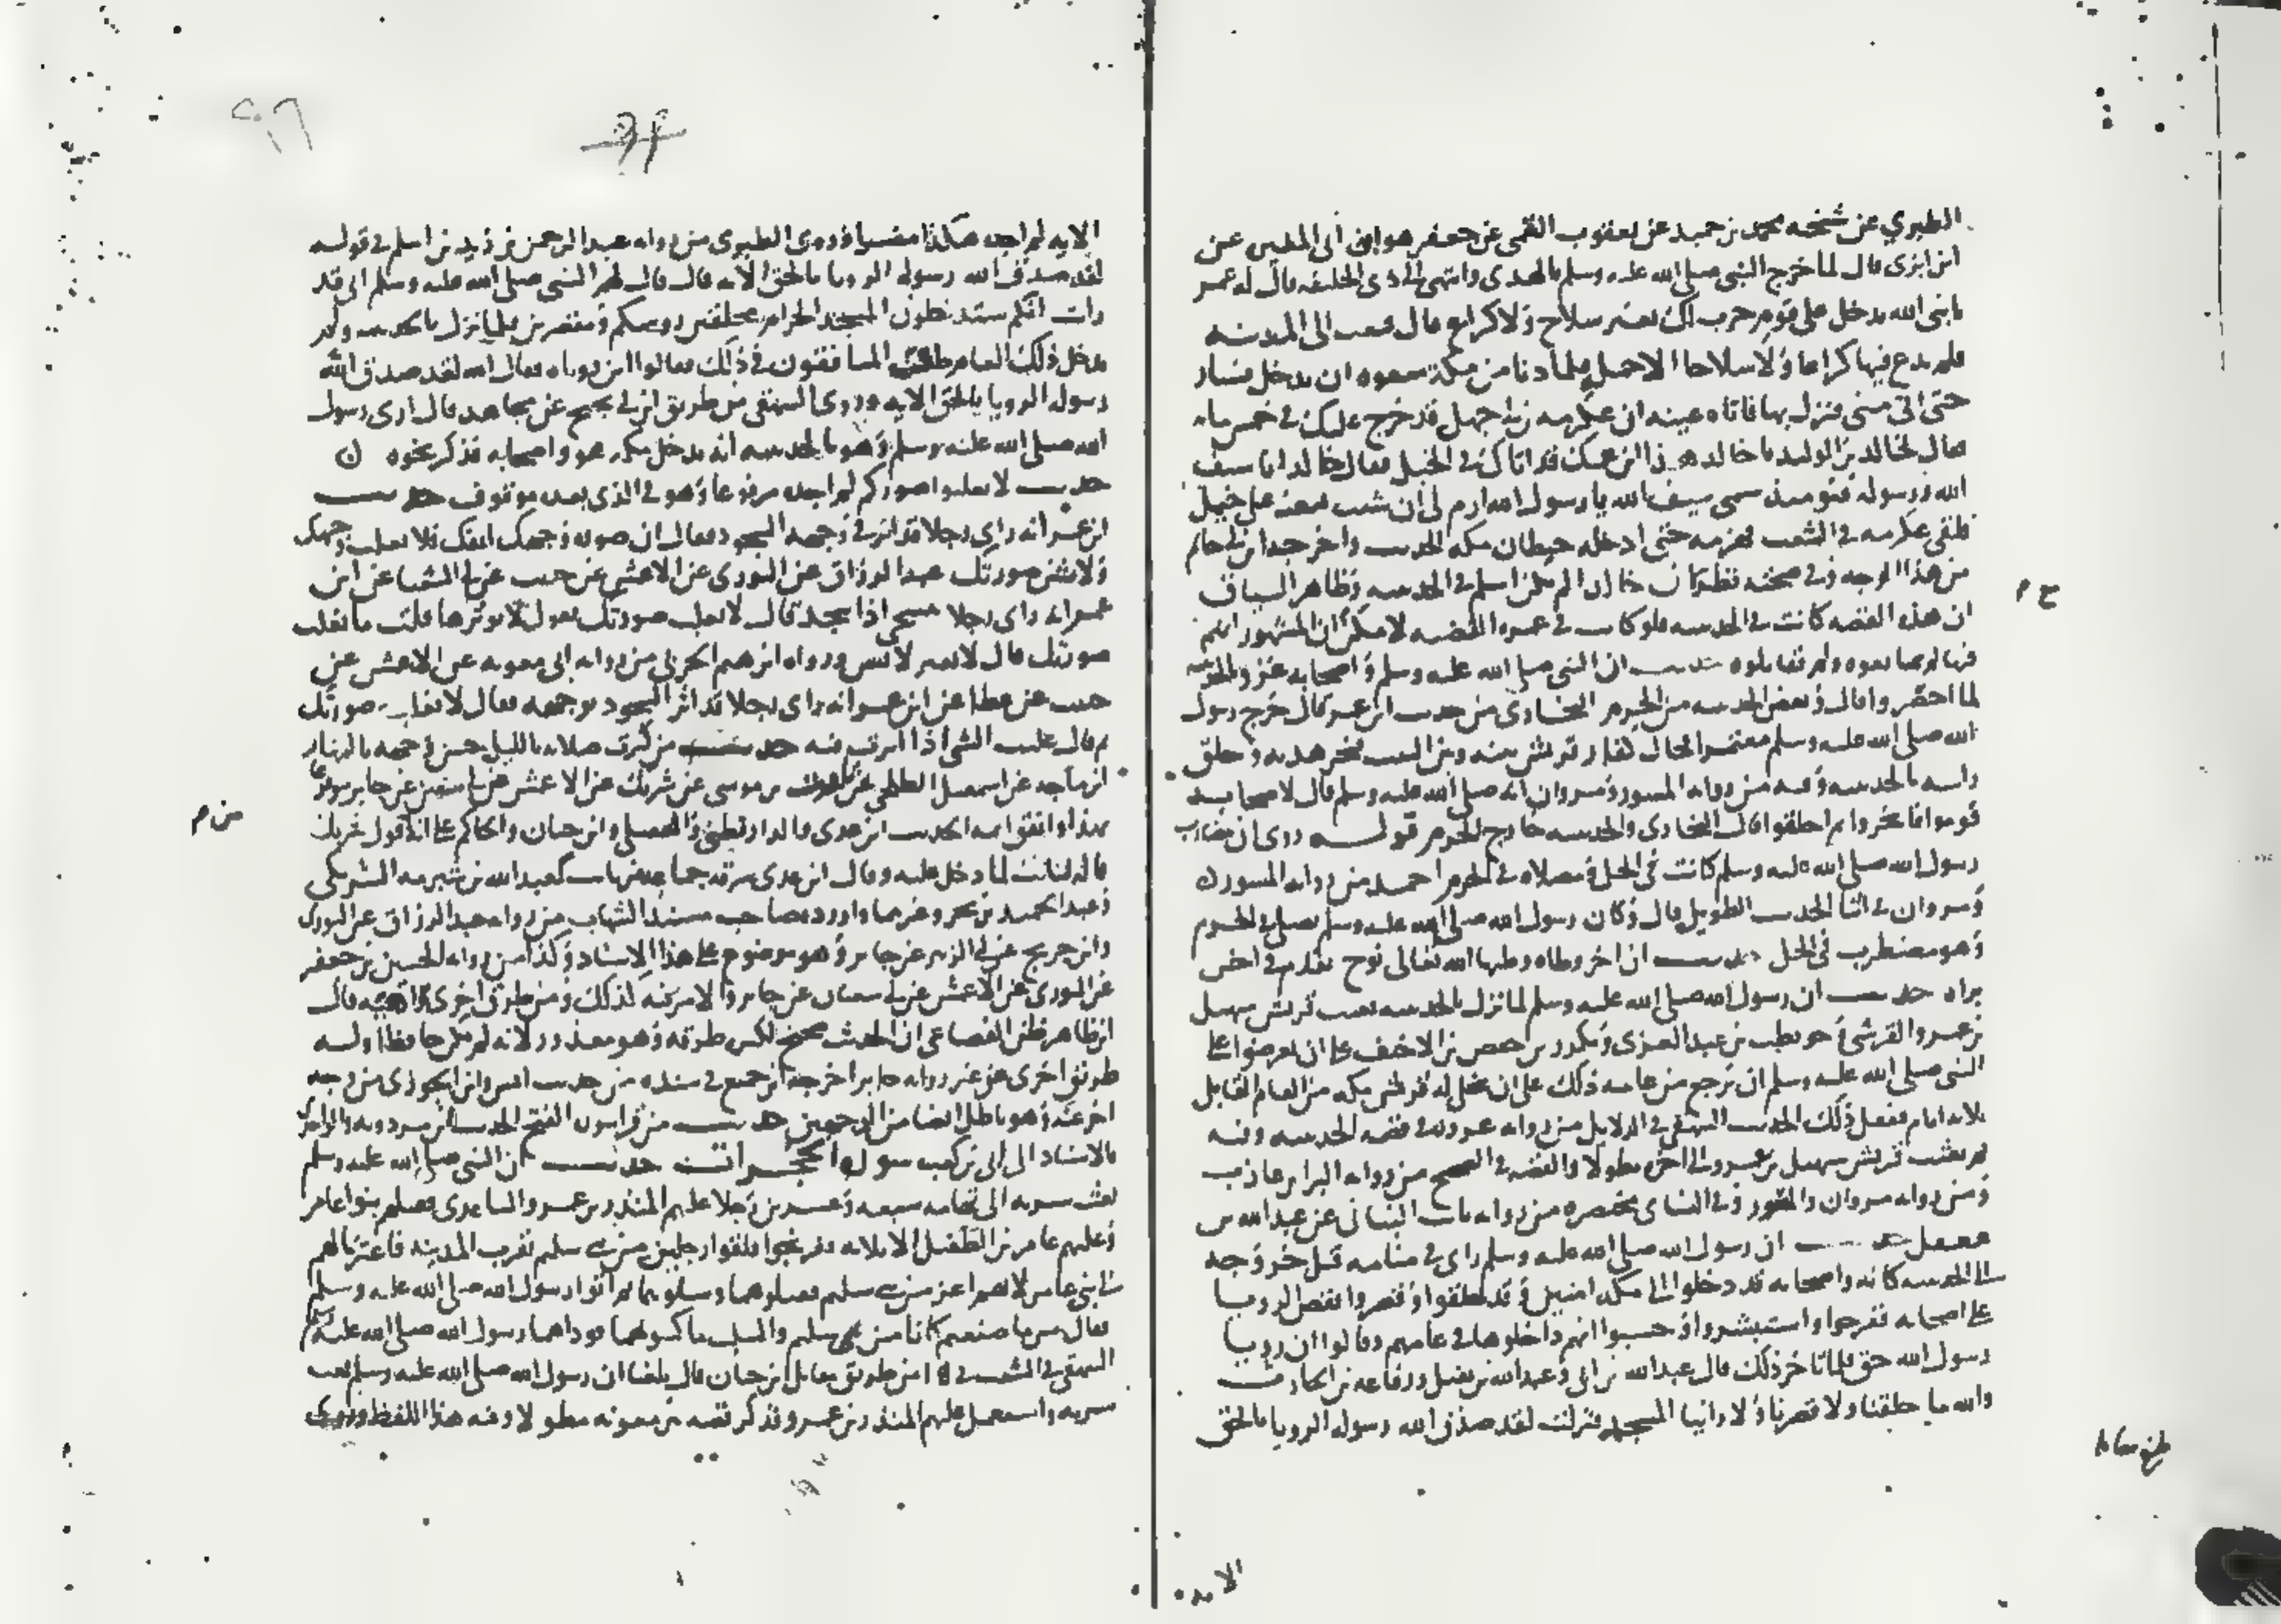 الطبري عن شيخه محمد بن حميد عن يعقوب القمي عن جعفر هو ابن أبي المغيرة عن
ابن ابزى قال لما خرج النبي صلى الله عليه وسلم بالهدى وانتهى الى ذي الحليفة قال له عمر
يا نبي الله تدخل على قوم حرب لك بغير سلاح ولا كراع قال فبعث الى المدينة
فلم يدع فيها كراعا ولا سلاحا الا حمله فلما دنا من مكة منعوه ان يدخل فسار
حتى اتى منى فنزل بها فاتاه عينه ان عكرمة بن أبي جهل قد خرج عليك في خمس مايه
فقال لخالد بن الوليد يا خالد هذا ابن عمك قد اتاك في الخيل فقال خالد انا سيف
الله ورسوله فيومئذ سمي سيف الله يا رسول الله ارم بي ان شئت فبعثه على خيل
فلقي عكرمه في الشعب فهزمه حتى ادخله حيطان مكه الحديث واخرجه ابن أبي حاتم
من هذا الوجه وفي صحته نظر لان خالدا لم يكن اسلم في الحديبيه وظاهر السياق
ان هذه القصه كانت في الحديبيه فلو كانت في عمرة القضيه لامكن لان المشهور انهم
فيها لم يمانعوه ولم يقاتلوه حديث ان النبي صلى الله عليه وسلم واصحابه
لما احصروا قال وبعض الحديبيه من الحرم البخاري من حديث ابن عمر قال خرج رسول
الله صلى الله عليه وسلم معتمرا فحال كفار قريش بينه وبين البيت فنحر هديه وحلق
راسه بالحديبيه وفيه من روايه المسور ومروان انه صلى الله عليه وسلم قال لاصحابه
قوموا فانحروا ثم احلقوا قال البخاري والحديبيه خارج الحرم قوله روى ان مضارب
رسول الله صلى الله عليه وسلم كانت في الحل ومصلاه في الحرم احمد من روايه المسور
ومروان في اثنا الحديث الطويل قال وكان رسول الله صلى الله عليه وسلم يصلي في الحرم
وهو مضطرب في الحل حديث ان اخر وطاه وطيها الله تعالى بوج تقدم في اخر
براه حديث ان رسول الله صلى الله عليه وسلم لما نزل بالحديبيه بعث قريش سهيل
بن عمرو القرشي وحويطب بن عبد العزى ومكرز بن حفص بن الاخيف على ان يعرضوا على
النبي صلى الله عليه وسلم ان يرجع من عامه ذلك على ان تخلي له قريش مكه من العام القابل
ثلاثه ايام ففعل ذلك الحديث البيهقي في الدلايل من روايه عروه في قصه الحديبيه وفيه
ثم بعثت قريش سهيل بن عمرو الى اخره مطولا والقصه في الصحيح من روايه البرا بن عازب
ومن روايه مروان والمسور وفي النساي مختصره من روايه ثابت البناني عن عبد الله بن
مغفل حديث ان رسول الله صلى الله عليه وسلم راى في منامه قبل خروجه
الى الحديبيه كانه واصحابه قد دخلوا الى مكه امنين وقد حلقوا وقصروا فقص الرويا
على اصحابه ففرحوا واستبشروا وحسبوا انهم داخلوها في عامهم وقالوا ان رويا
رسول الله حق فلما تاخر ذلك قال عبد الله بن ابي وعبد الله بن نفيل ورفاعه بن الحارث
والله ما حلقنا ولا قصرنا ولا راينا المسجد فنزلت لقد صدق الله رسوله الرويا بالحق
الايه
الايه لم اجده هكذا مفسرا وروى الطبري من روايه عبد الرحمن بن زيد بن اسلم في قوله
لقد صدق الله رسوله الرويا بالحق الايه قال قال لهم النبي صلى الله عليه وسلم اني قد
رايت انكم ستدخلون المسجد الحرام محلقين رؤسكم ومقصرين فلما نزل بالحديبيه ولم
يدخل ذلك العام طعن المنافقون في ذلك فقالوا اين روياه فقال الله لقد صدق الله
رسوله الرويا بالحق الايه وروى البيهقي من طريق ابن أبي نجيح عن مجاهد قال ارى رسول
الله صلى الله عليه وسلم وهو بالحديبيه انه يدخل مكه هو واصحابه فذكر نحوه
حديث لا تعلبوا صوركم لم اجده مرفوعا وهو في الذي بعده موقوف حديث
ابن عمر انه راى رجلا قد اثر في وجهه السجود فقال ان صورة وجهك انفك فلا تعلب وجهك
ولا تشن صورتك عبد الرزاق عن الثوري عن الاعمش عن حبيب عن أبي الشعثا عن ابن
عمر انه راى رجلا ينتحي اذا سجد قال لا تعلب صورتك يقول لا توثرها قلت ما تعلب
صورتك قال لا تغير لا تشن ورواه ابرهيم الحربي من روايه ابي معويه عن الاعمش عن
حبيب عن عطا عن ابن عمر انه راى رجلا قد اثر السجود بوجهه فقال لا تعلب صورتك
ثم قال علبت الشي اذا اثرت فيه حديث من كثرت صلاته بالليل حسن وجهه بالنهار
ابن ماجه عن اسمعيل الطلحي عن ثابت بن موسى عن شريك عن الاعمش عن أبي سفين عن جابر مرفوعا
بهذا واتفق ايمه الحديث ابن عدي والدارقطني والعقيلي وابن حبان والحاكم على انه من قول شريك
قاله لثابت لما دخل عليه وقال ابن عدي سرقه جماعه من ثابت كعبد الله بن شبرمه الشريكي
وعبد الحميد بن بحر وغيرهما واورده صاحب مسند الشهاب من روايه عبد الرزاق عن الثوري
وابن جريج عن أبي الزبير عن جابر وهو موضوع على هذا الاسناد وكذا من روايه الحسين بن جعفر
عن الثوري عن الاعمش عن أبي سفيان عن جابر والامر فيه كذلك ومن طرق اخرى واهيه قال
ابن طاهر ظن القضاعي ان الحديث صحيح لكثرة طرقه وهو معذور لانه لم يكن حافظا وله
طريق اخرى من غير روايه جابر اخرجه ابن جميع في سنده من حديث انس وابن الجوزي من وجه
اخر عنه وهو باطل ايضا من الوجهين حديث من قرا سورة الفتح الحديث ابن مردويه والواحدي
بالاسناد الى ابي بن كعب سورة الحجرات حديث ان النبي صلى الله عليه وسلم
بعث سريه الى تهامه سبعه وعشرين رجلا عليهم المنذر بن عمرو الساعدي فقتلهم بنو عامر
وعليهم عامر بن الطفيل الا ثلاثه نفر نجوا فلقوا رجلين من بني سليم بقرب المدينه فاعتزيا لهم
الى بني عامر لانهم اعز من بني سليم فقتلوهما وسلبوهما ثم اتوا رسول الله صلى الله عليه وسلم
فقال بئس ما صنعتم كانا من بني سليم والسلب ما كسوتهما فوداهما رسول الله صلى الله عليه وسلم
البيهقي في الشعب في من طريق مقاتل بن حيان قال بلغنا ان رسول الله صلى الله عليه وسلم بعث
سريه واستعمل عليهم المنذر بن عمرو فذكر قصه بئر معونه مطولا وفيه هذا اللفظ وروى